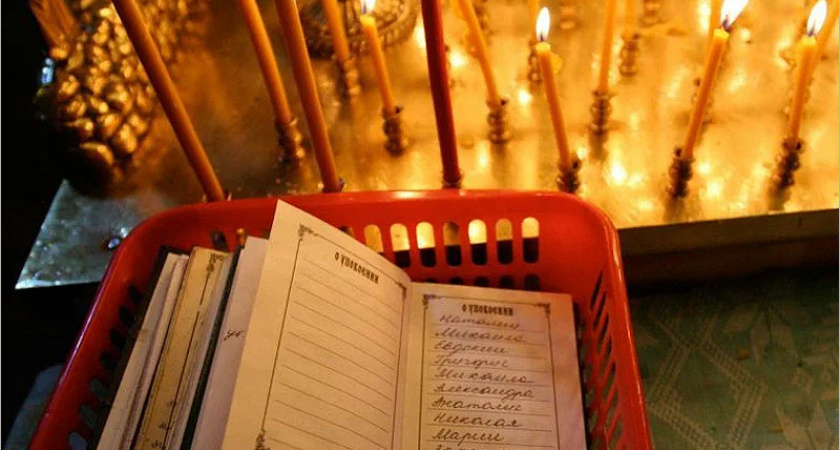 О УПОКОЕНИИ
О УПОКОЕНИИ
Наталии
Михаила
Евдокии
Григория
Михаила
Александра
Анатолия
Николая
Марии